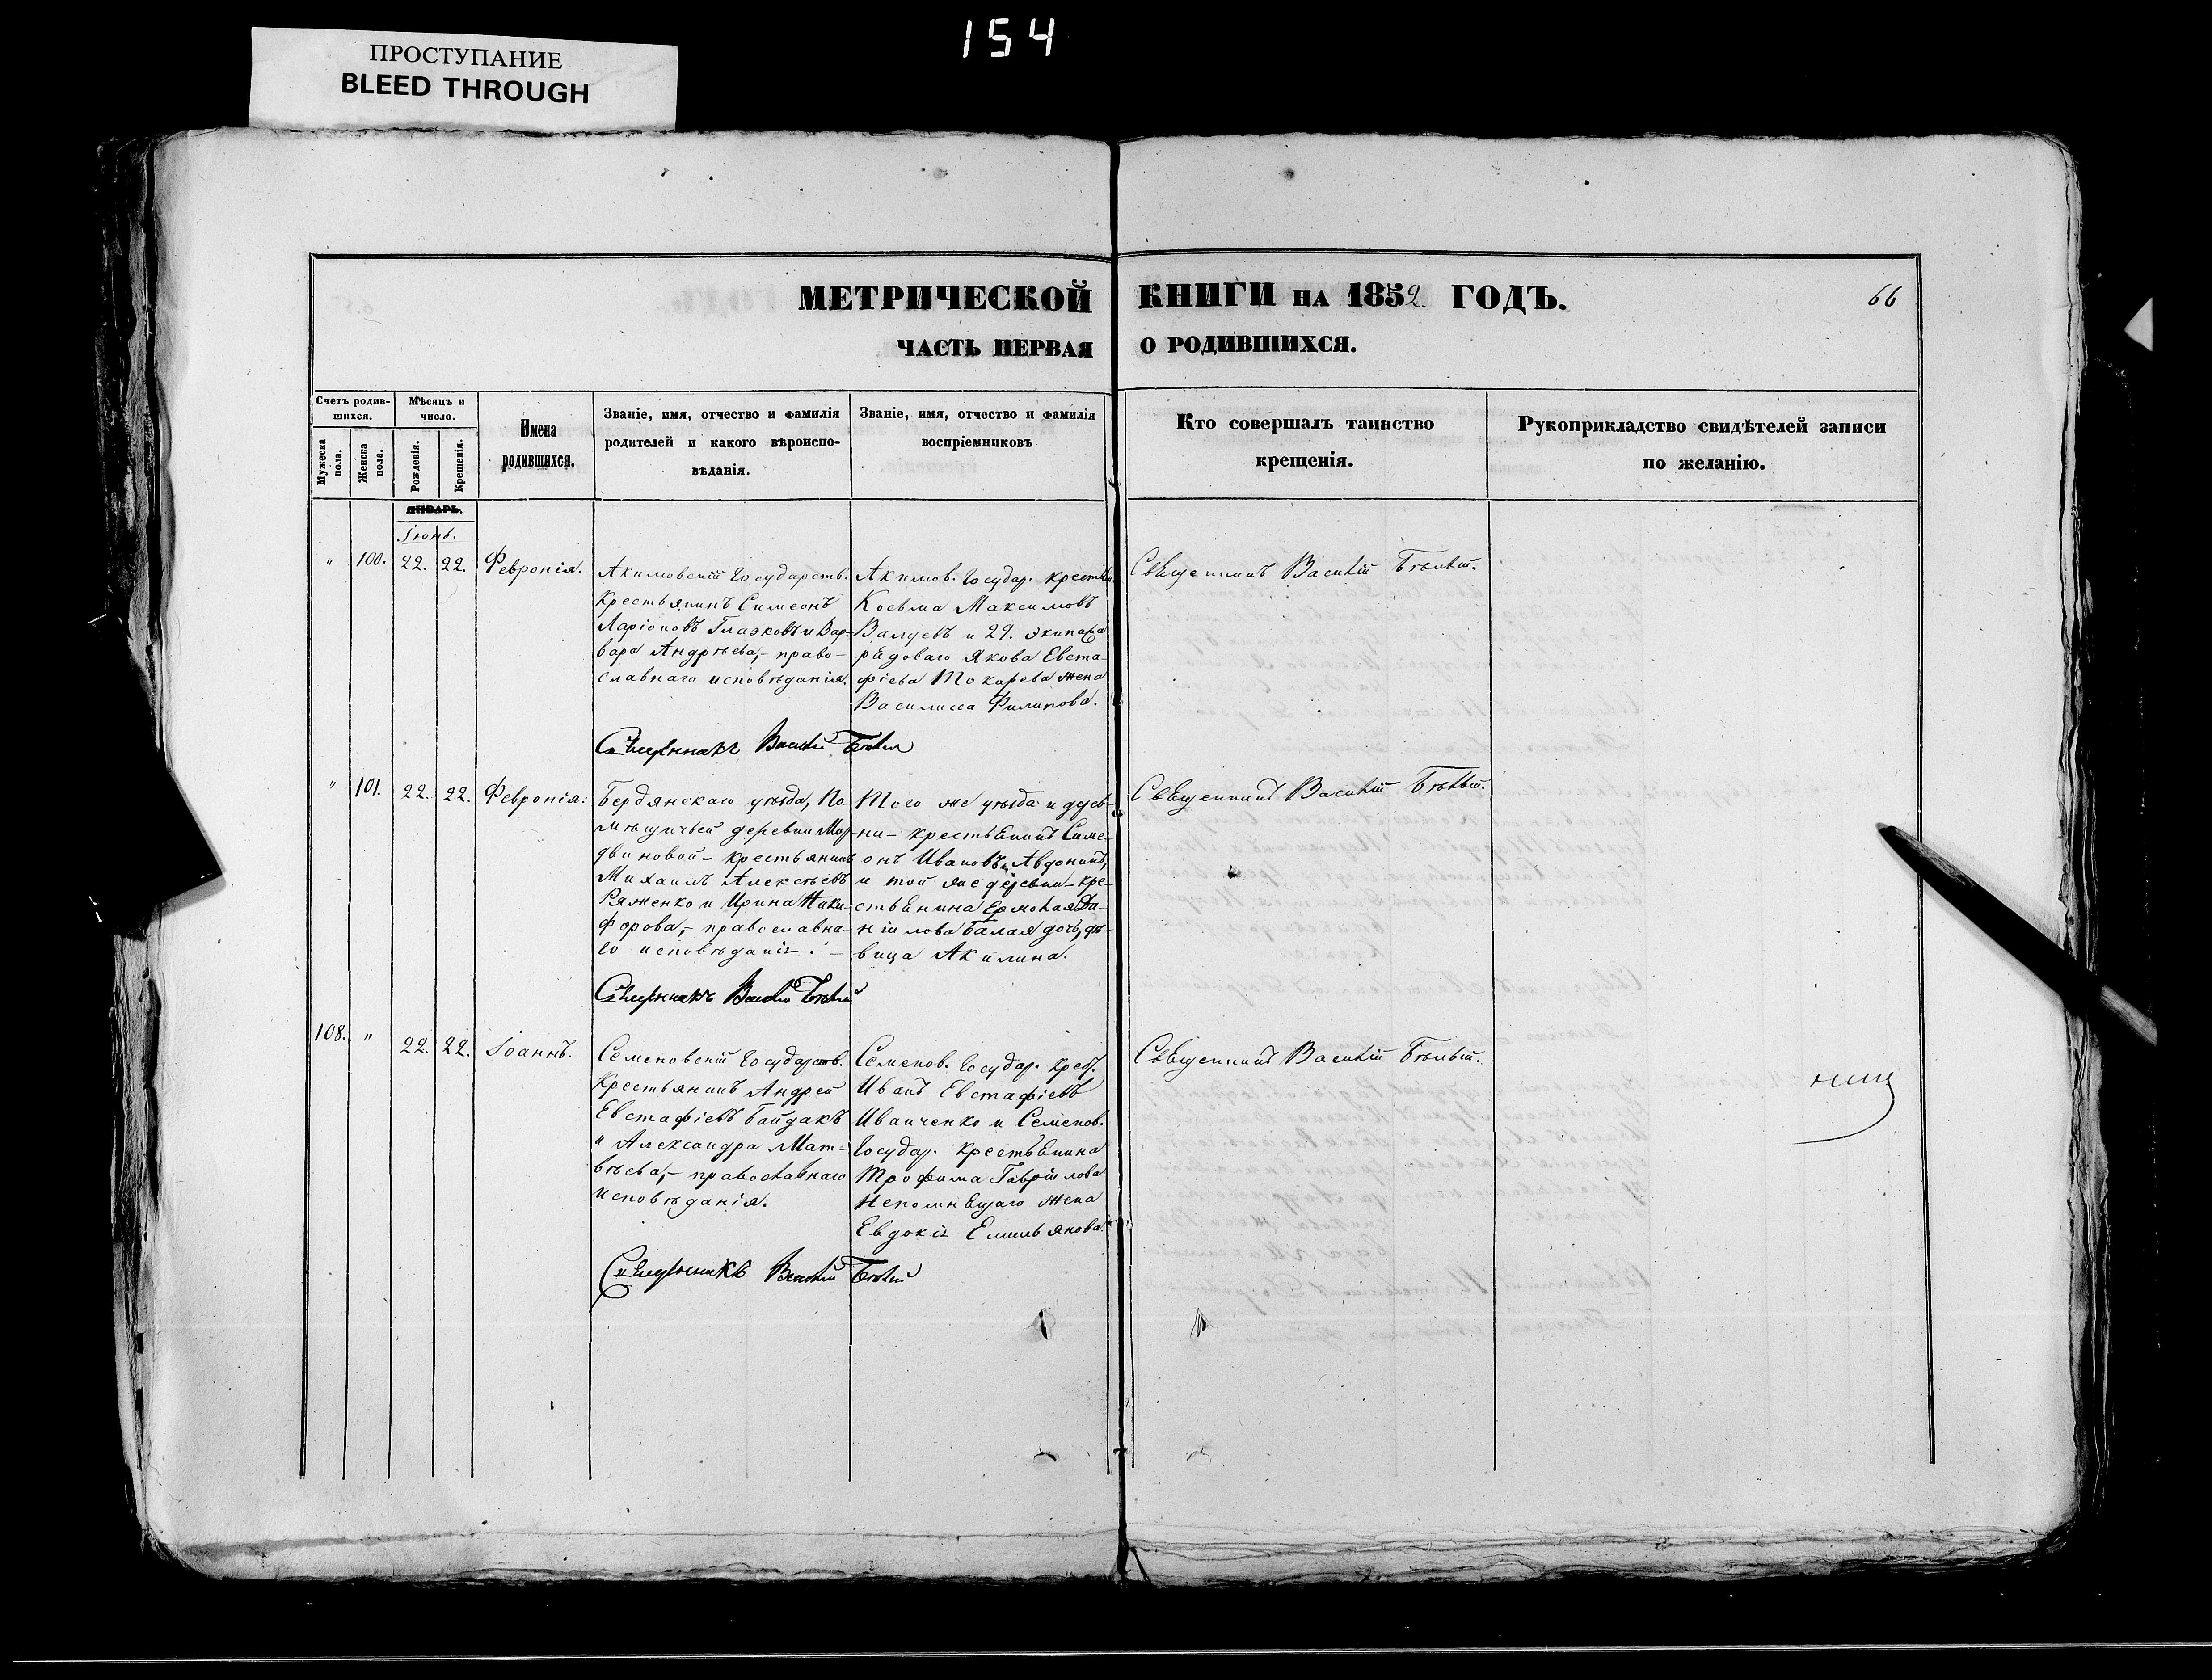 154
ПРОСТУПАНИЕ
BLEED THROUGH
МЕТРИЧЕСКОЙ КНИГИ НА 1852 ГОДЪ.
66
ЧАСТЬ ПЕРВАЯ О РОДИВШИХСЯ.
Счетъ родив-
шихся.
Мужеска пола.
Женска пола.
Мѣсяцъ и
число.
Рожденія.
Крещенія.
Имена
родившихся.
Званіе, имя, отчество и фамилія
родителей и какого вѣроиспо-
вѣданія.
Званіе, имя, отчество и фамилія
воспріемниковъ
Кто совершалъ таинство
крещенія.
Рукоприкладство свидѣтелей записи
по желанію.
ЯНВАРЬ.
Іюнь.
" 100. 22. 22. Февронія.
Акимовскій Государств.
крестьянинъ Симеонъ
Ларіоновъ Глазковъ и Вар-
вара Андрѣева,- право-
славнаго исповѣданія.
Акимов. Государ. крестьян.
Косьма Максимовъ
Валуевъ и 29. экипажа
рядоваго Якова Евста-
фіева Токарева жена
Василисса Филипова.
Священникъ Василій Бѣлый.
Священникъ Василій Бѣлый
" 101. 22. 22. Февронія:
Бердянскаго уѣзда, По-
мѣщичьей деревни Мор-
двиновой - крестьянинъ
Михаилъ Алексѣевъ
Ряженко и Ирина Ники-
форова,- православна-
го исповѣданія. -
Того же уѣзда и дерев-
ни - крестьянинъ Симе-
онъ Ивановъ Авдонинъ,
и той же деревни - кре-
стьянина Ермолая Да-
ніилова Балая дочь, дѣ-
вица Акилина.
Священникъ Василій Бѣлый.
Священникъ Василій Бѣлый
108. " 22. 22. Іоаннъ.
Семеновскій Государств.
Крестьянинъ Андрей
Евстафіевъ Байдакъ
и Александра Мат-
вѣева,- православнаго
исповѣданія.
Семенов. Государ. крес.
Иванъ Евстафіевъ
Иванченко и Семенов.
Государ. крестьянина
Трофима Гавріилова
Непомнящаго жена
Евдокія Емильянова.
Священникъ Василій Бѣлый.
Священникъ Василій Бѣлый